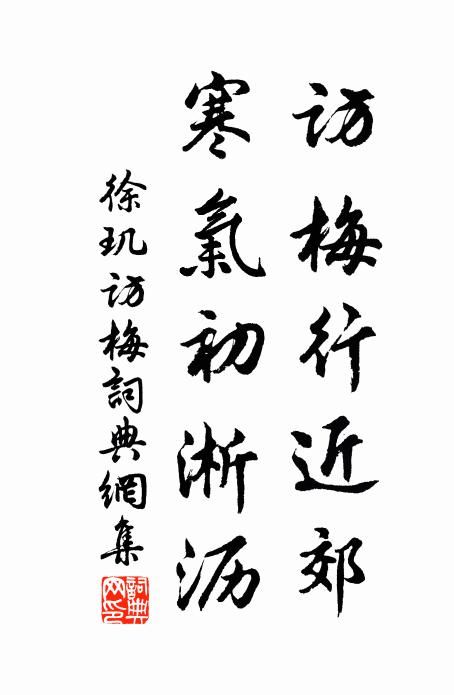 访梅行近郊
寒氣初淅沥
徐玑访梅詞典網集
詞典网印